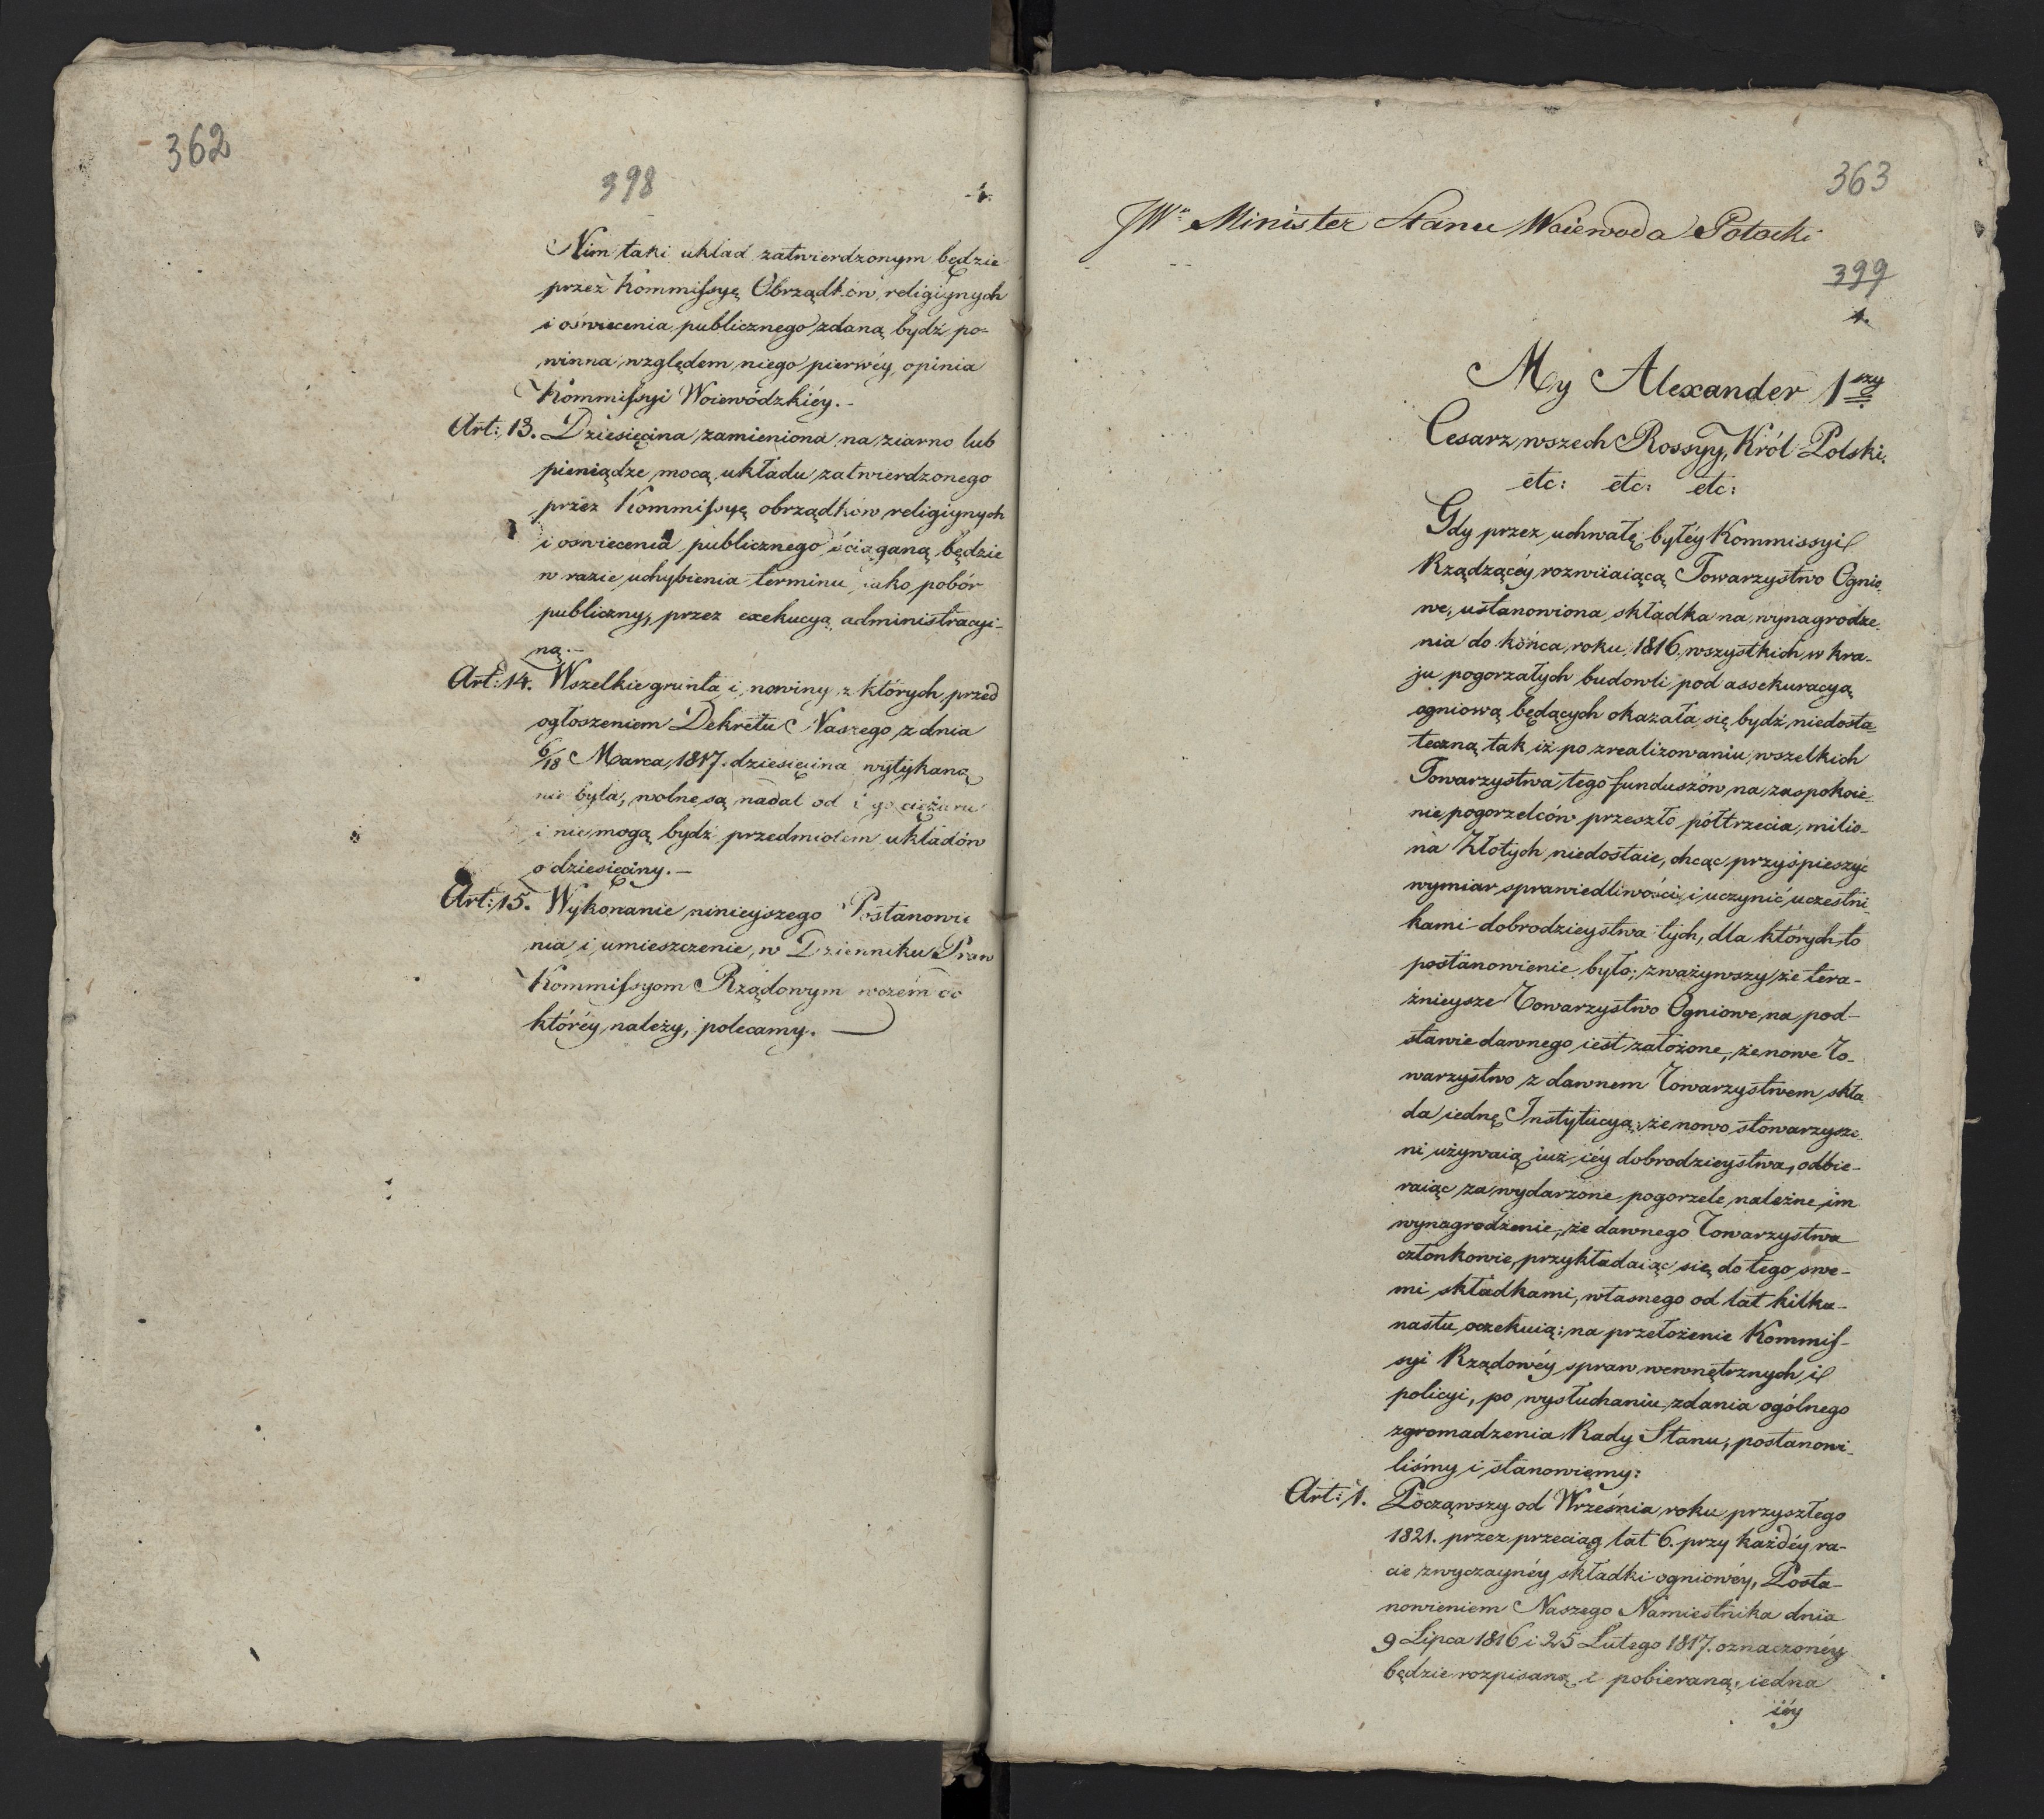 362
398
Nim taki układ zatwierdzonym będzie
przez Kommissyę Obrządków religiynych
i oświecenia publicznego zdaną bydź po=
winna względem niego pierwéy opinia
Kommissyi Woiewódzkiéy.-
Art: 13. Dziesięcina zamieniona na ziarno lub
pieniądze mocą układu zatwierdzonego
przez Kommissyę obrządków religiynych
i oswiecenia publicznego ściąganą będzie
w razie uchybienia terminu iako pobór
publiczny, przez exekucyą administracyi-
ną.-
Art: 14. Wszelkie grunta i nowiny z których przed
ogłoszeniem Dekretu Naszego z dnia
6/18 Marca 1817. dziesięcina wytykaną
nie była, wolne są nadal od ciężaru
i nie mogą bydź przedmiotem układów
o dziesięciny.-
Art: 15. Wykonanie ninieyszego Postanowie
nia i umieszczenie w Dzienniku Praw
Kommissyom Rządowym wczém do
któréy należy, polecamy.
363
JW Minister Stanu Woiewoda Potocki
399
1.
My Alexander 1szy
Cesarz wszech Rossyy, Król Polski.
etc: etc: etc:
Gdy przez uchwałę byłéy Kommissyi
Rządzącéy rozwiiaiącą Towarzystwo Ognio
we, ustanowiona składka na wynagrodze
nia do końca roku 1816 wszystkich w kra-
ju pogorzałych budowli pod assekuracyą
ogniową będących okazała się bydź niedosta
teczną tak iż po zrealizowaniu wszelkich
Towarzystwa tego funduszów na zaspokoie
nie pogorzelców przeszło półtrzecia milio-
na Złotych niedostaie, chcąc przyśpieszyć
wymiar sprawiedliwości i uczynić uczestni
kami dobrodzieystwa tych, dla których to
postanowienie było; zważywszy że tera-
źnieysze Towarzystwo Ogniowe na pod-
stawie dawnego iest założone, że nowe To-
warzystwo z dawnem Towarzystwem skła
da iednę Instytucyą; że nowo stowarzysze
ni używaią iuż iéy dobrodzieystwa, odbie-
raiąc za wydarzone pogorzele należne im
wynagrodzenie, że dawnego Towarzystwa
członkowie, przykładaiąc się do tego swe-
mi składkami, własnego od lat kilku-
nastu oczekuią: na przełożenie Kommis-
syi Rządowéy spraw wewnętrznych i
policyi, po wysłuchaniu zdania ogólnego
zgromadzenia Rady Stanu, postanowi-
liśmy i stanowiemy:
Art: 1. Począwszy od Września roku przyszłego
1821. przez przeciąg lat 6. przy każdéy ra-
cie zwyczaynéy składki ogniowéy, Posta-
nowieniem Naszego Namiestnika dnia
9 Lipca 1816 i 25 Lutego 1817. oznaczonéy
będzie rozpisaną i pobieraną, iedna
iéy